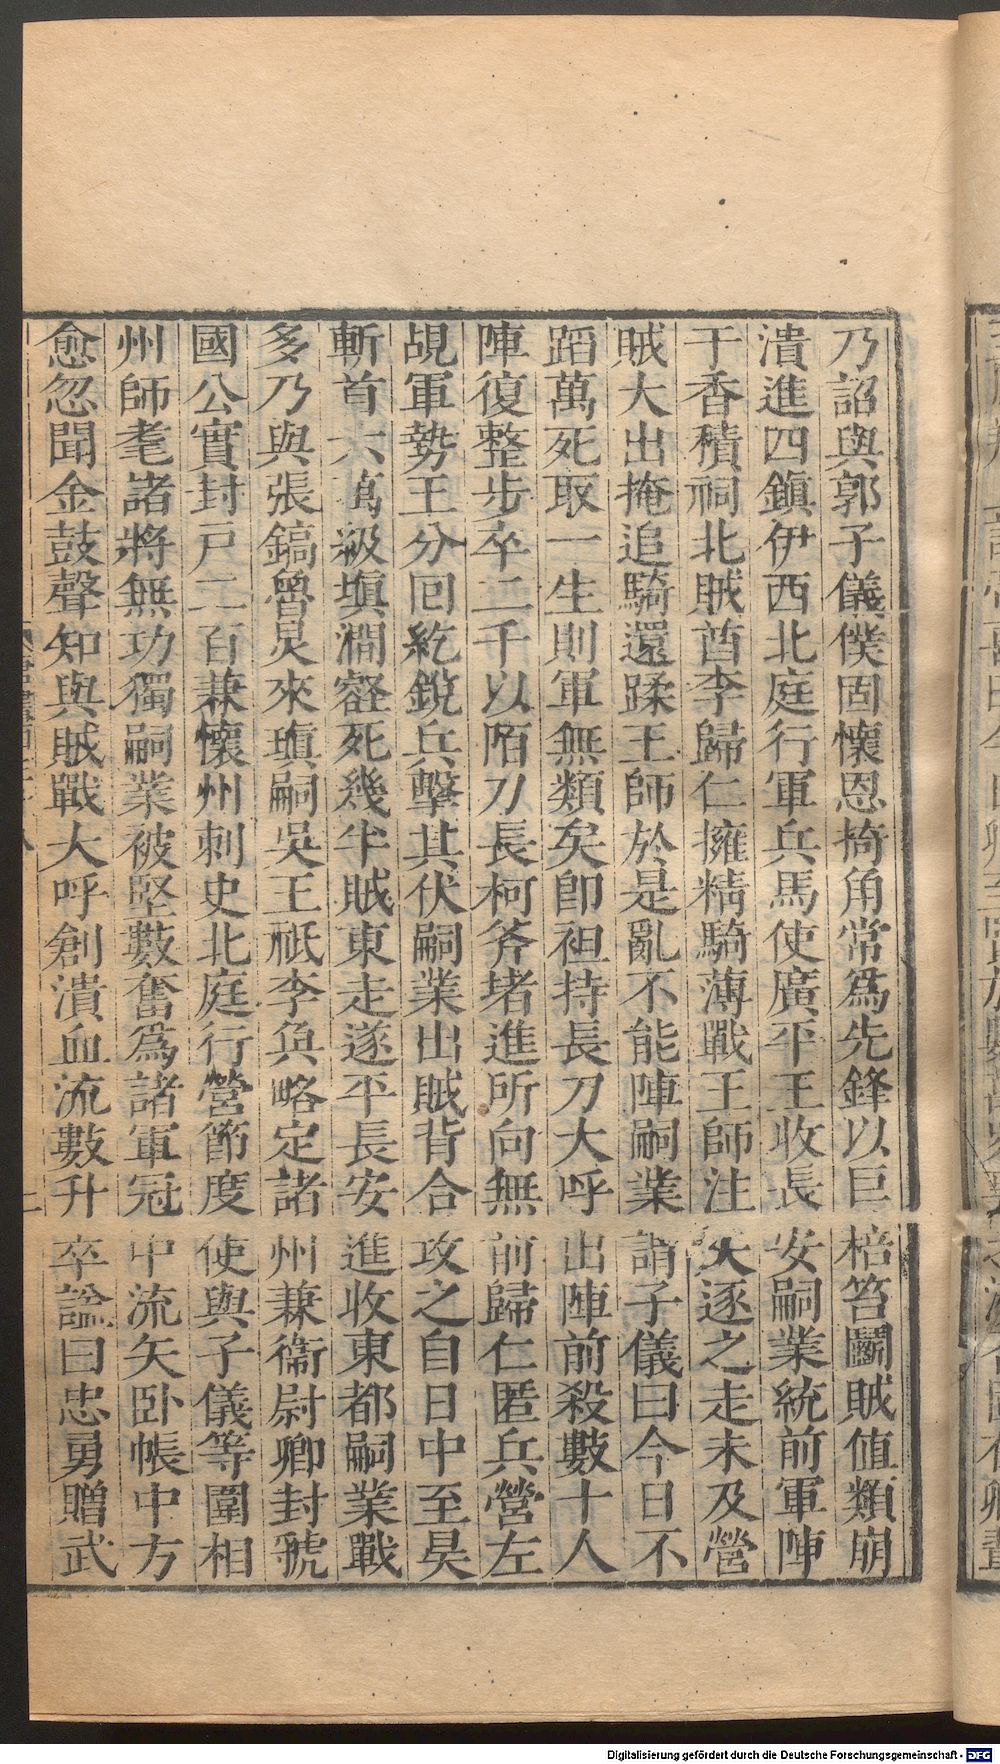 乃詔與郭子儀僕固懷恩掎角常爲先鋒以巨棓笞鬬賊值類崩
潰進四鎭伊西北庭行軍兵馬使廣平王收長安嗣業統前軍陣
于香積祠北賊酋李歸仁擁精騎薄戰王師注矢逐之走未及營
賊大出掩追騎還蹂王師於是亂不能陣嗣業謂子儀曰今日不
蹈萬死取一生則軍無類矣卽袒持長刀大呼出陣前殺數十人
陣復整步卒二千以陌刀長柯斧堵進所向無前歸仁匿兵營左
覘軍勢王分回紇銳兵擊其伏嗣業出賊背合攻之自日中至昃
斬首六萬級塡澗壑死幾半賊東走遂平長安進收東都嗣業戰
多乃與張鎬魯炅來瑱嗣吳王祗李奐略定諸州兼衞尉卿封虢
國公實封戸二百兼懷州刺史北庭行營節度使與子儀等圍相
州師耄諸將無功獨嗣業被堅數奮爲諸軍冠中流矢卧帳中方
愈忽聞金鼓聲知與賊戰大呼創潰血流數升卒謚曰忠勇贈武
Digitalisierung gefördert durch die Deutsche Forschungsgemeinschaft - DFG